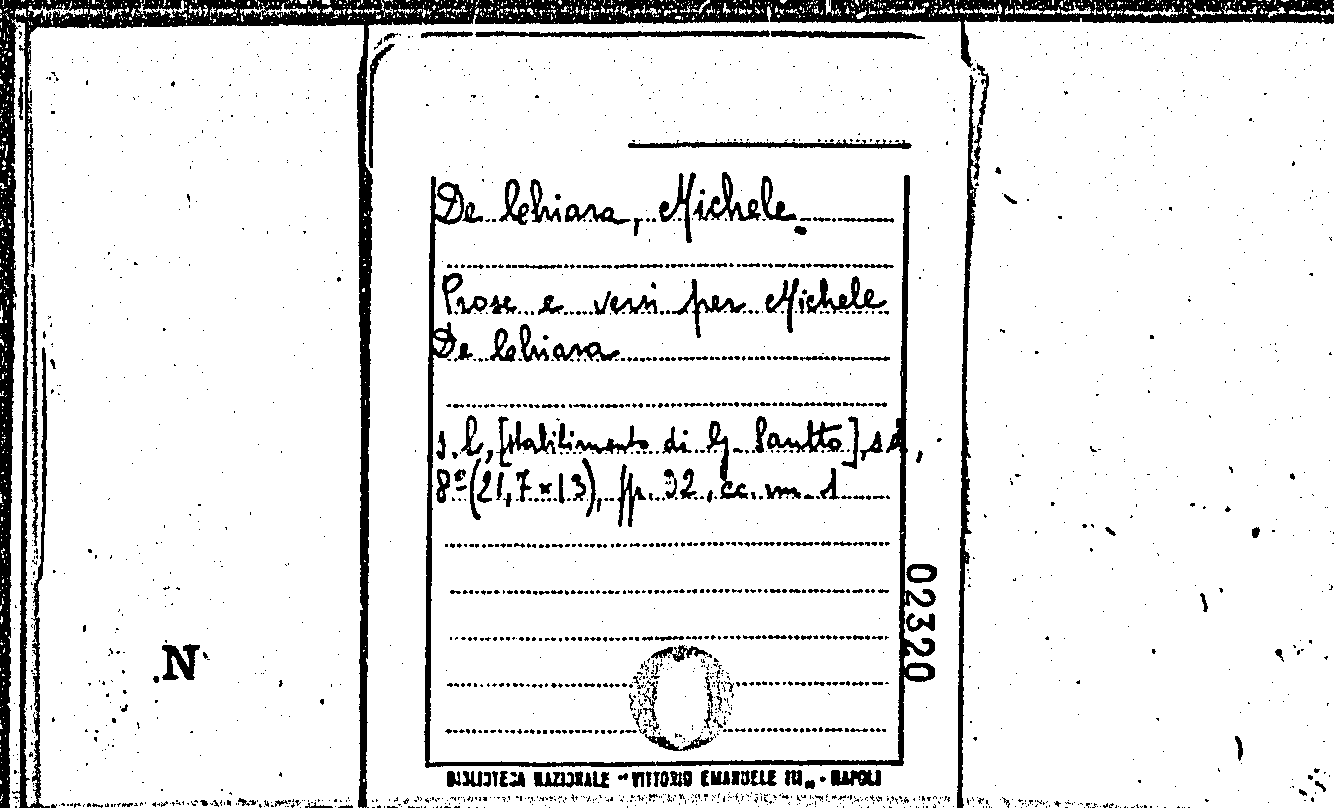 De Chiara, Michele.
Prose e versi per Michele
De Chiara
s. l., [stabilimento di G. Pautto], s d,
8º (21,7 x 13), pp. 32, cc. nn. 1
02320
N
BIBLIOTECA NAZIONALE "VITTORIO EMANUELE III" - NAPOLI